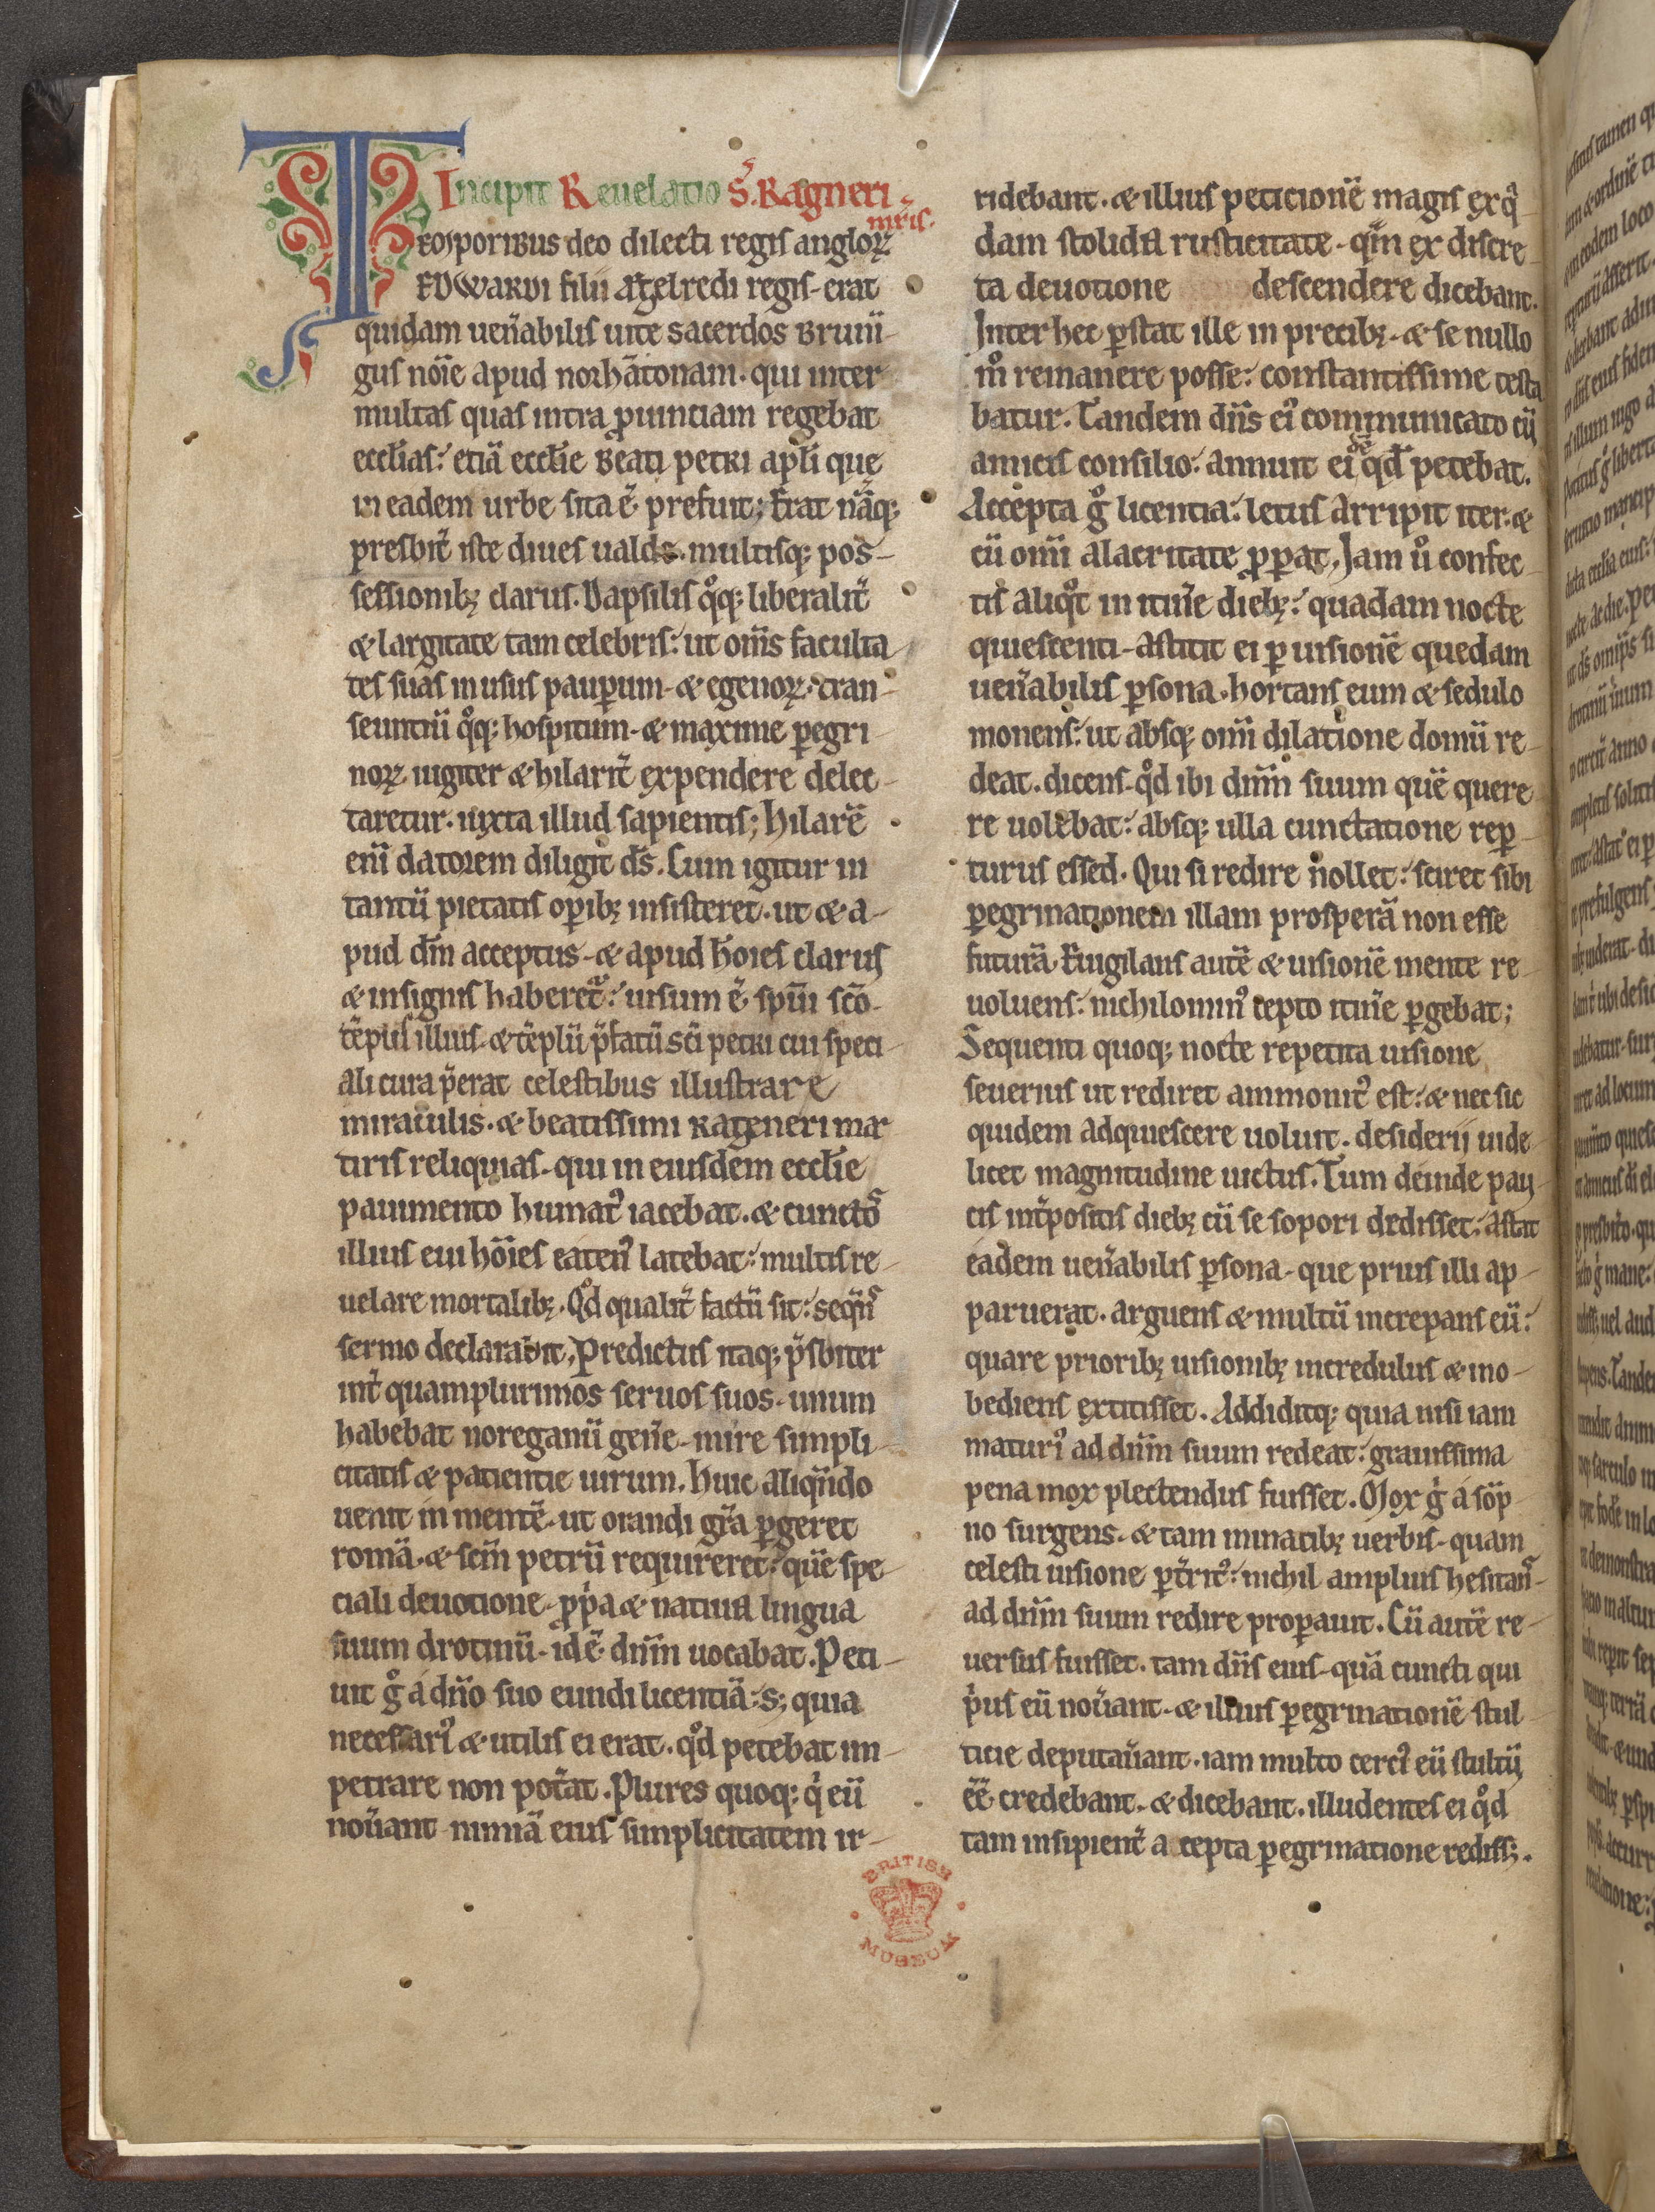 Incipit Reuelatio S. Ragneri
mr̃is.
Teosporibus deo dilecti regis angloꝝ
EDWARDI filii Aꝥelredi regis erat
quidam ueñabilis uite sacerdos Bruni-
gus nõie apud norhãtonam. qui inter
multas quas intra ꝓuintiam regebat
eccl̃ias: etiã eccl̃ie Beati petri apl̃i que
in eadem urbe sita ẽ prefuit; Erat nãq;
presbit̃ iste diues ualde. multisq; pos-
sessionibꝫ clarus. Dapsilis q̊q; liberalit̃
& largitate tam celebris: ut om̃s faculta
tes suas in usus pauꝑum & egenoꝝ. tran-
seuntiũ q̊q; hospitum & maxime ꝑegri
noꝝ iugiter & hilarit̃ expendere delec-
taretur. iuxta illud sapientis; Hilarẽ
eni datorem diligit d̃s. Cum igitur in
tantũ pietatis oꝑibꝫ insisteret. ut & a-
pud dm̃ acceptus & apud hõies clarus
& insignis haberet: uisum ẽ spũi scõ
tẽpus illius & tẽplũ p̃fatũ sc̃i petri cui speci
ali cura p̃erat celestibus illustrare
miraculis. & beatissimi Rageneri mar
tiris reliquias. qui in eiusdem eccl̃ie
pauimento humat᾽ iacebat. & cuncto
illius eui hõies eaten᾽ latebat: multis re-
uelare mortalibꝫ. Qd̊ qualit̃ factũ sit: seq̃ns
sermo declarabit. Predictus itaq; p̃sbiter
int̃ quamplurimos seruos suos. unum
habebat noreganũ geñe mire simpli
citatis & patientie uirum. Huic aliqñdo
uenit in mentẽ. ut orandi gr̃a ꝑgeret
romã & sc̃m petrũ requireret: quẽ spe-
ciali deuotione ꝓp̃a & natiua lingua
suum drotinũ. id ẽ dñm uocabat. Peti-
uit g̊ a dño suo eundi licentiã: s; quia
necessari᾽ & utilis ei erat. qd̊ petebat im-
petrare non pot̃at. Plures quoq; q̓ eũ
noũant nimiã eius simplicitatem ir-
ridebant. & illius peticionẽ magis ex q̃
dam stolida rusticitate. qm̃ ex discre-
ta deuotione descendere dicebant.
Inter hec ꝑstat ille in precibꝫ. & se nullo
m̊ remanere posse: constantissime testa
batur. Tandem dñs ei᾽ communicato cũ
amicis consilio: annuit ei qd̊ petebat.
Accepta g̊ licentia: letus arripit iter. &
cũ om̃i alacritate ꝓꝑat. Jam u̇ confec
tis aliq̊t in itiñe diebꝫ: quadam nocte
quiescenti astitit ei ꝑ uisionẽ quedam
ueñabilis ꝑsona. hortans eum & sedulo
monens: ut absq; om̃i dilatione domũ re-
deat. dicens. qd̊ ibi dñm suum quẽ quere
re uolebat: absq; ulla cunctatione reꝑ
turus esset. Qui si redire nollet: sciret sibi
ꝑegrinationem illam prosperã non esse
futurã. Euigilans autẽ & uisionẽ mente re-
uoluens: nichilomin᾽ cepto itiñe ꝑgebat;
Sequenti quoq; nocte repetita uisione
seuerius ut rediret ammonit᾽ est: & nec sic
quidem adquiescere uoluit. desiderii uide
licet magnitudine uictus. Tum deinde pau
cis int̃positis diebꝫ cũ se sopori dedisset: astat
eadem ueñabilis ꝑsona. que prius illi ap-
paruerat. arguens & multũ increpans eũ:
quare prioribꝫ uisionibꝫ incredulus & ino-
bediens extitisset. Addiditq; quia nisi iam
maturi᾽ ad dñm suum redeat: grauissima
pena mox plectendus fuisset. Mox g̊ a sop
no surgens. & tam minacibꝫ uerbis quam
celesti uisione ꝑt̃rit᾽: nichil amplius hesitans-
ad dñm suum redire proꝑauit. Cũ autẽ re-
uersus fuisset. tam dñs eius quã cuncti qui
p̓us eũ noũant. & illius ꝑegrinationẽ stul
ticie deputaũant. iam multo cerci᾽ eũ stultũ
ẽẽ credebant. & dicebant. illudentes ei qd̊
tam insipient̃ a cepta ꝑegrinatione rediss;.
BRITISH
MUSEUM